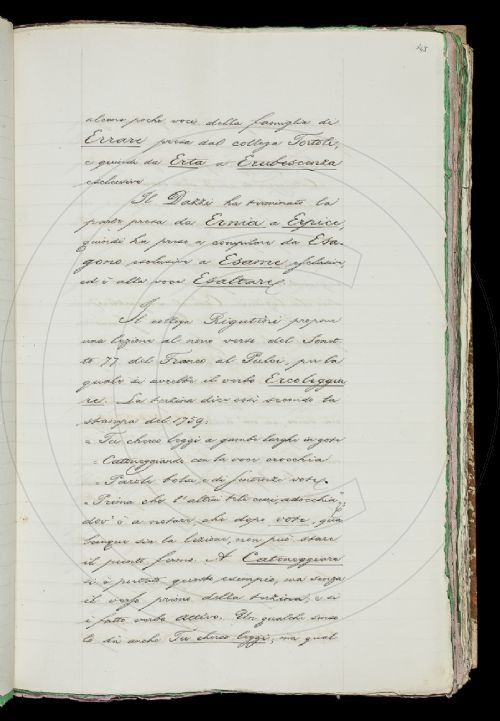 145
alcune poche voci della famiglia di
Errare presa dal collega Tortoli,
e quindi da Erta a Erubescenza
esclusive.
Il Dazzi ha terminato la
parte presa da Ernia a Erpice,
quindi ha preso a compilare da Esa-
gono esclusive a Esame esclusive,
ed è alla voce Esaltare.
Il collega Rigutini propone
una lezione al nono verso del Sonet-
to 77 del Franco al Pulci, per la
quale si avrebbe il verbo Ercoleggia
re. La terzina dice così secondo la
stampa del 1759:
= Tu cherco leggi a gambe larghe in gote
= Catoneggiando con la voce crocchia
= Parole belle, e di sentenze vote,
= Prima che l'altrui
dov'è a notare che dopo vote, qua
lunque sia la lezione, non può stare
il punto fermo. A Catoneggiare
si è portato questo esempio, ma senza
il verso primo della terzina, e si
è fatto verbo attivo. Un qualche senso
lo dà anche Tu cherco leggi, ma qual